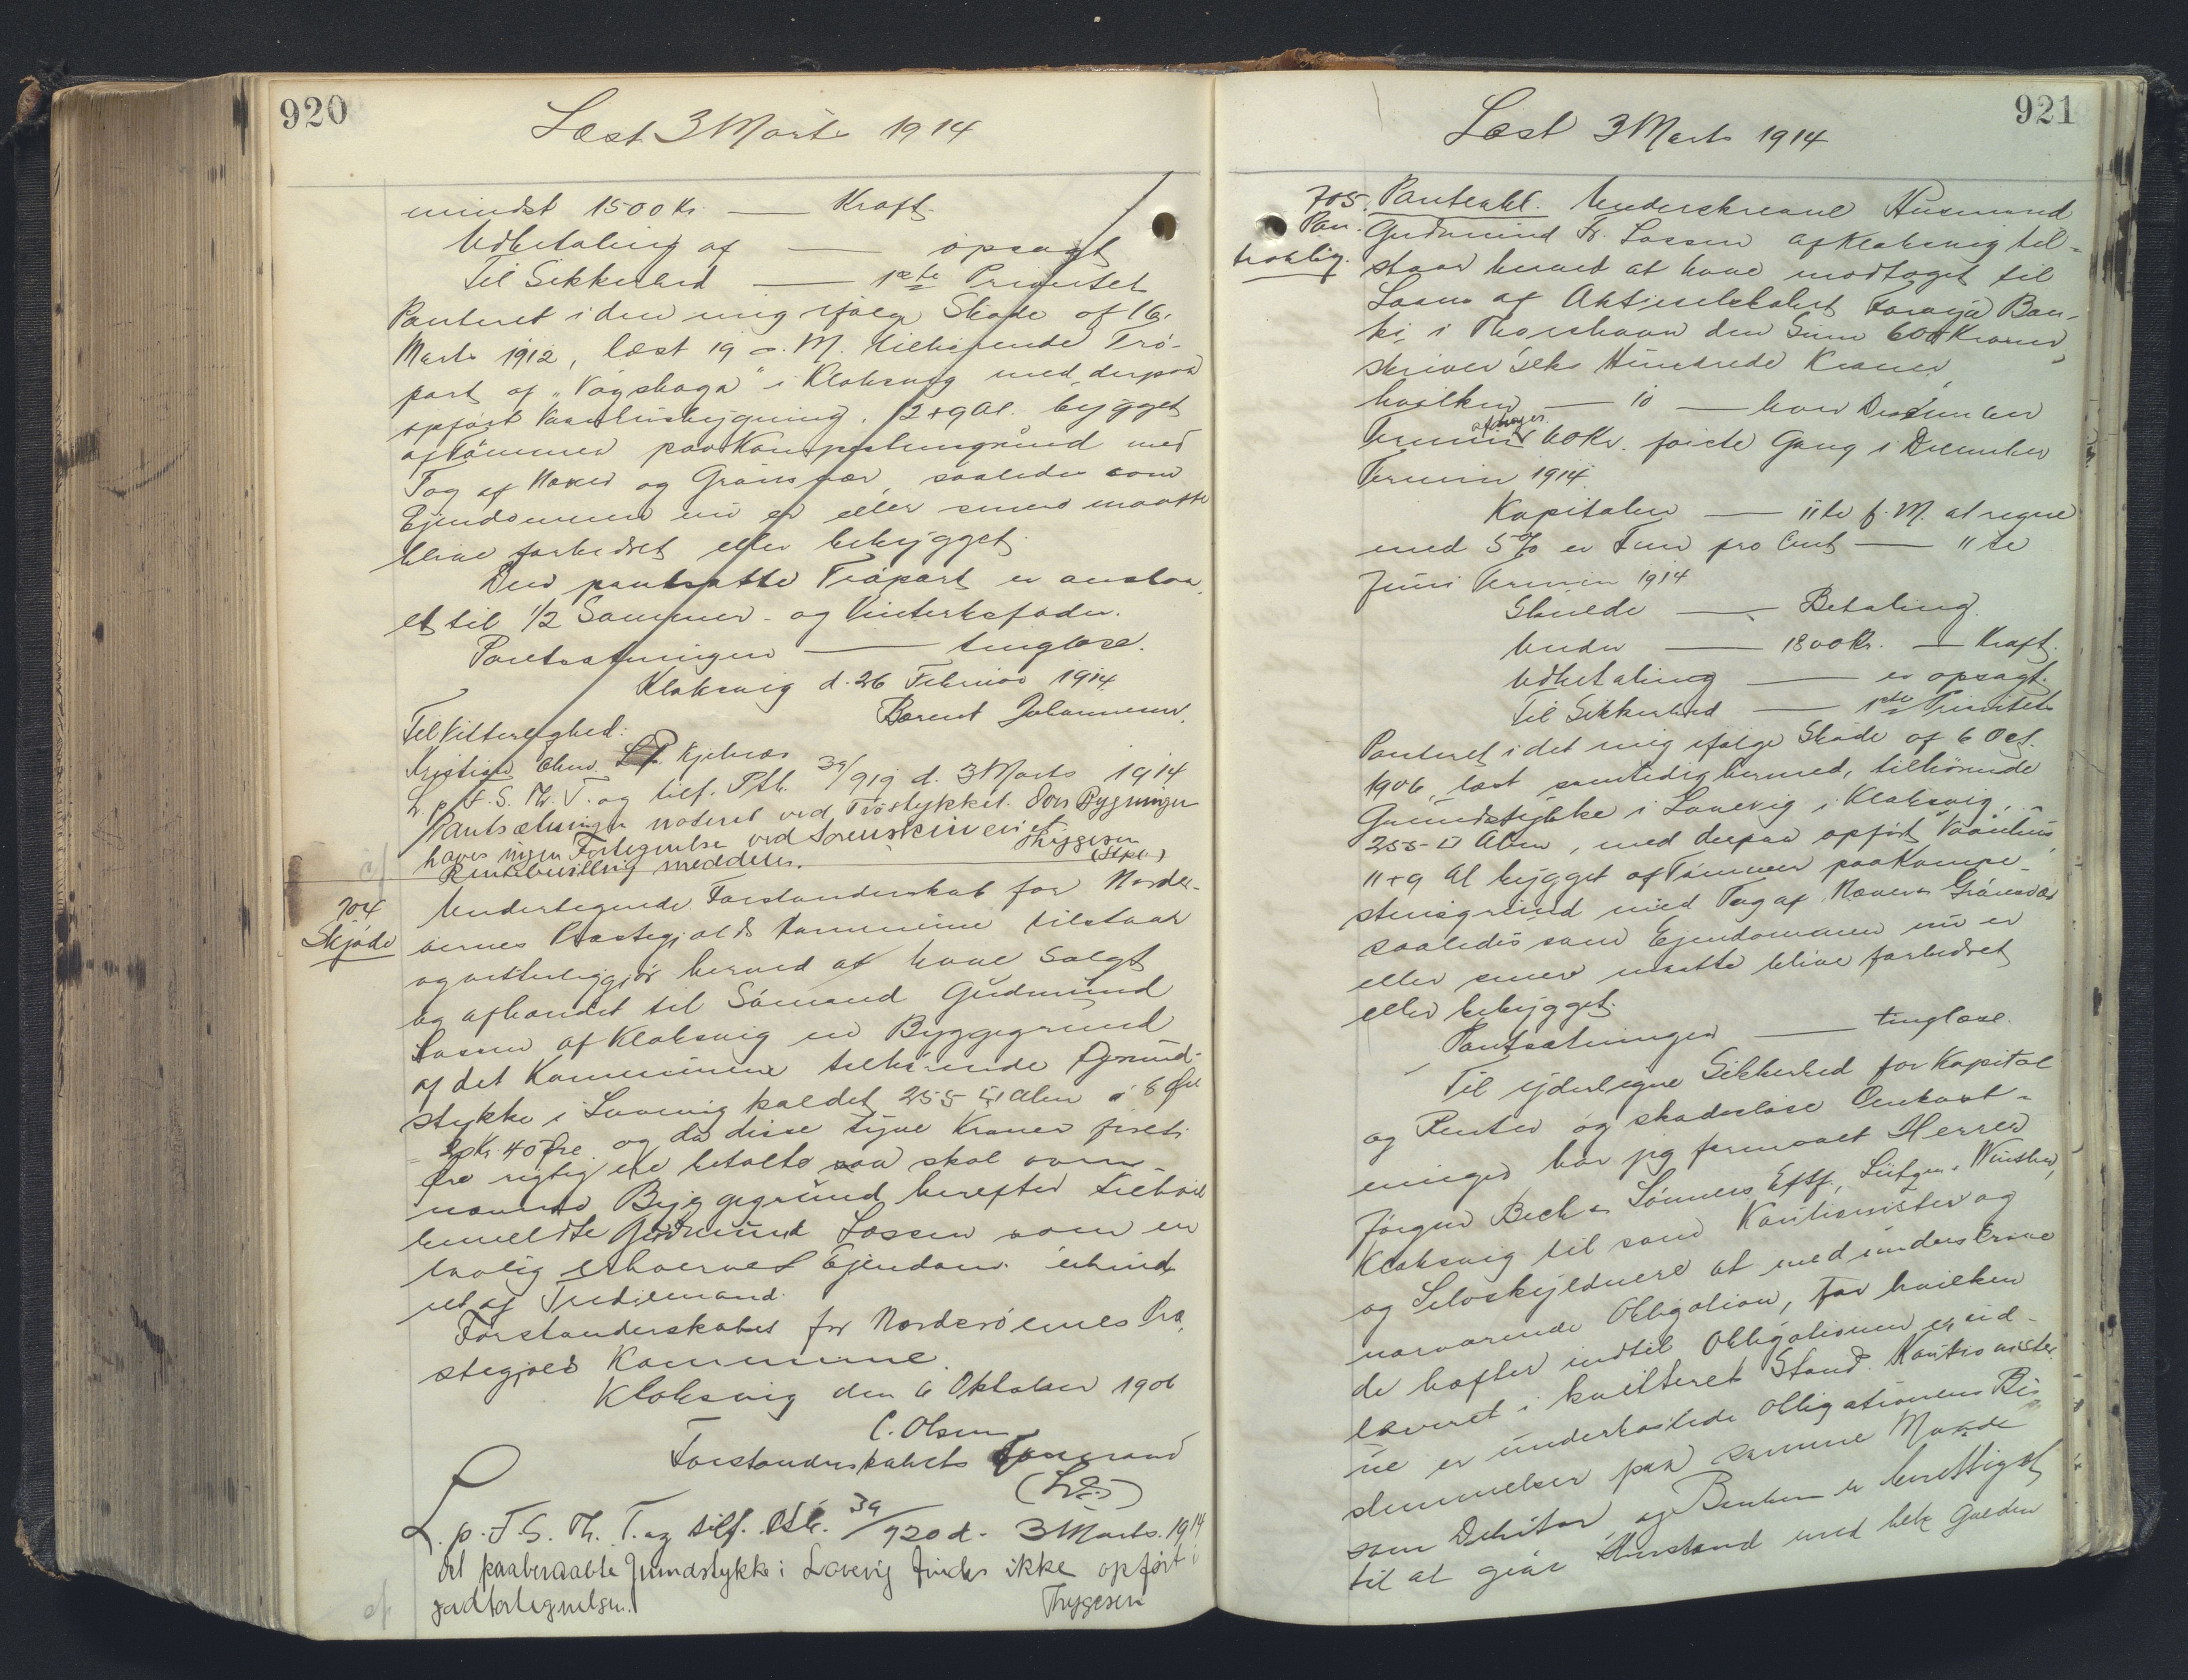 920
Læst 3 Marts 1914
mindst 1500 Kr. — Kraft.
Udbetaling af — opsagt
Til Sikkerhed — 1ste Prioritet
Panteret i den mig ifølge Skøde af 16.
Marts 1912, læst 19 s. M. tilhørende Trø-
part af "Vágshaga" i Klaksvig med derpaa
opført Vaanhusbygning, 12+9 Al. bygget
af Tømmer paa Kampestensgrund med
Tag af Næver og Grønsvær, saaledes som
Ejendommen nu er eller senere maatte
blive forbedret eller bebygget.
Den pantsatte Trøpart er anslaa-
et til 1/2 Sommer- og Vinterkofoder.
Pantsætningen — tinglæse.
Klaksvig d. 26 Februar 1914
Barent Johannesen.
Til Vitterlighed:
Kristian Olsen. Kjelnæs
L. p. F. S. Th. T. og tilf. Ptb. 39/919 d. 3 Marts 1914
Pantsætningen noteret ved Trøstykket. Over Bygningen
haves ingen Fortegnelse ved Sorenskriveriet
Rentebevilling meddeles. Thygesen
(Stpl.)
704
Skjøde
Undertegnede Forstanderskab for Norder-
øernes Præstegjælds Kommune tilstaar
og vitterliggjør herved at have Solgt
og afhændet til Sømand Gudmund
Lassen af Klaksvig en Byggegrund
af det Kommunen tilhørende Grund-
stykke i Lavevig kaldet 255 □ Alen á 8 Øre
= 20 Kr. 40 Øre. og da disse tyve Kroner fireti
Øre rigtig ere betalte saa skal oven-
nævnte Byggegrund herefter tilhøre
bemeldte Gudmund Lassen som en
lovlig erhvervet Ejendom uhind-
ret af Tredjemand.
Forstanderskabet for Norderøernes Præ-
stegjæld Kommune.
Klaksvig den 6 Oktober 1906
C. Olsen
Forstanderskabets Formand
(L.S.)
L. p. F. S. Th. T. og tilf. Ptb. 39/920 d. 3 Marts. 1914
Det paaberaabte Grundstykke i Lavevig findes ikke opført i
Jordfortegnelsen. Thygesen
921
Læst 3 Marts 1914
705.
Pan-
teoblig.
Panteobl. Underskrevne Husmand
Gudmund Fr. Lassen af Klaksvig til-
staar herved at have modtaget til
Laans af Aktieselskabet Førøya Ban-
ki i Thorshavn den Sum 600 Kroner,
skriver Seks Hundrede Kroner,
hvilken — 10 — hver December
Termin afdrages 60 Kr. første Gang i December
Termin 1914.
Kapitalen — 11te f. M. at regne
med 5 % er Fem pro Cent — 11te
Juni Termin 1914
Skulde — Betaling.
Under — 1800 Kr. — Kraft.
Udbetaling — er opsagt.
Til Sikkerhed — 1ste Prioritets
Panteret i det mig ifølge Skøde af 6 Oct.
1906, læst samtidig hermed, tilhørende
Grundstykke i Lavevig i Klaksvig,
255 □ Alen, med derpaa opført Vaanhus,
11+9 Al bygget af Tømmer paa Kampe-
stensgrund med Tag af Næver & Grønsvær
saaledes som Ejendommen nu er
eller senere maatte blive forbedret
eller bebygget.
Pantsætningen — tinglæse.
Til yderligere Sikkerhed for Kapital
og Renter og skadesløse Omkost-
ninger har jeg formaaet Herrer
Jørgen Bech & Sønners Eftf., Lützen & Winther,
Klaksvig til som Kautionister og
og Selvskyldnere at medunderskrive
nærværende Obligation, for hvilken
de hæfter indtil Obligationen er ud-
leveret i kvitteret Stand. Kautionister-
ne er underkastede Obligationens Be-
stemmelser paa samme Maade
som Debitor, og Banken er berettiget
til at give Henstand med hele Gælden